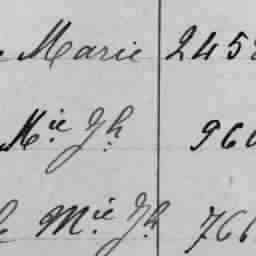 Marie 245
Mie Jh 960
Mie Jh 766